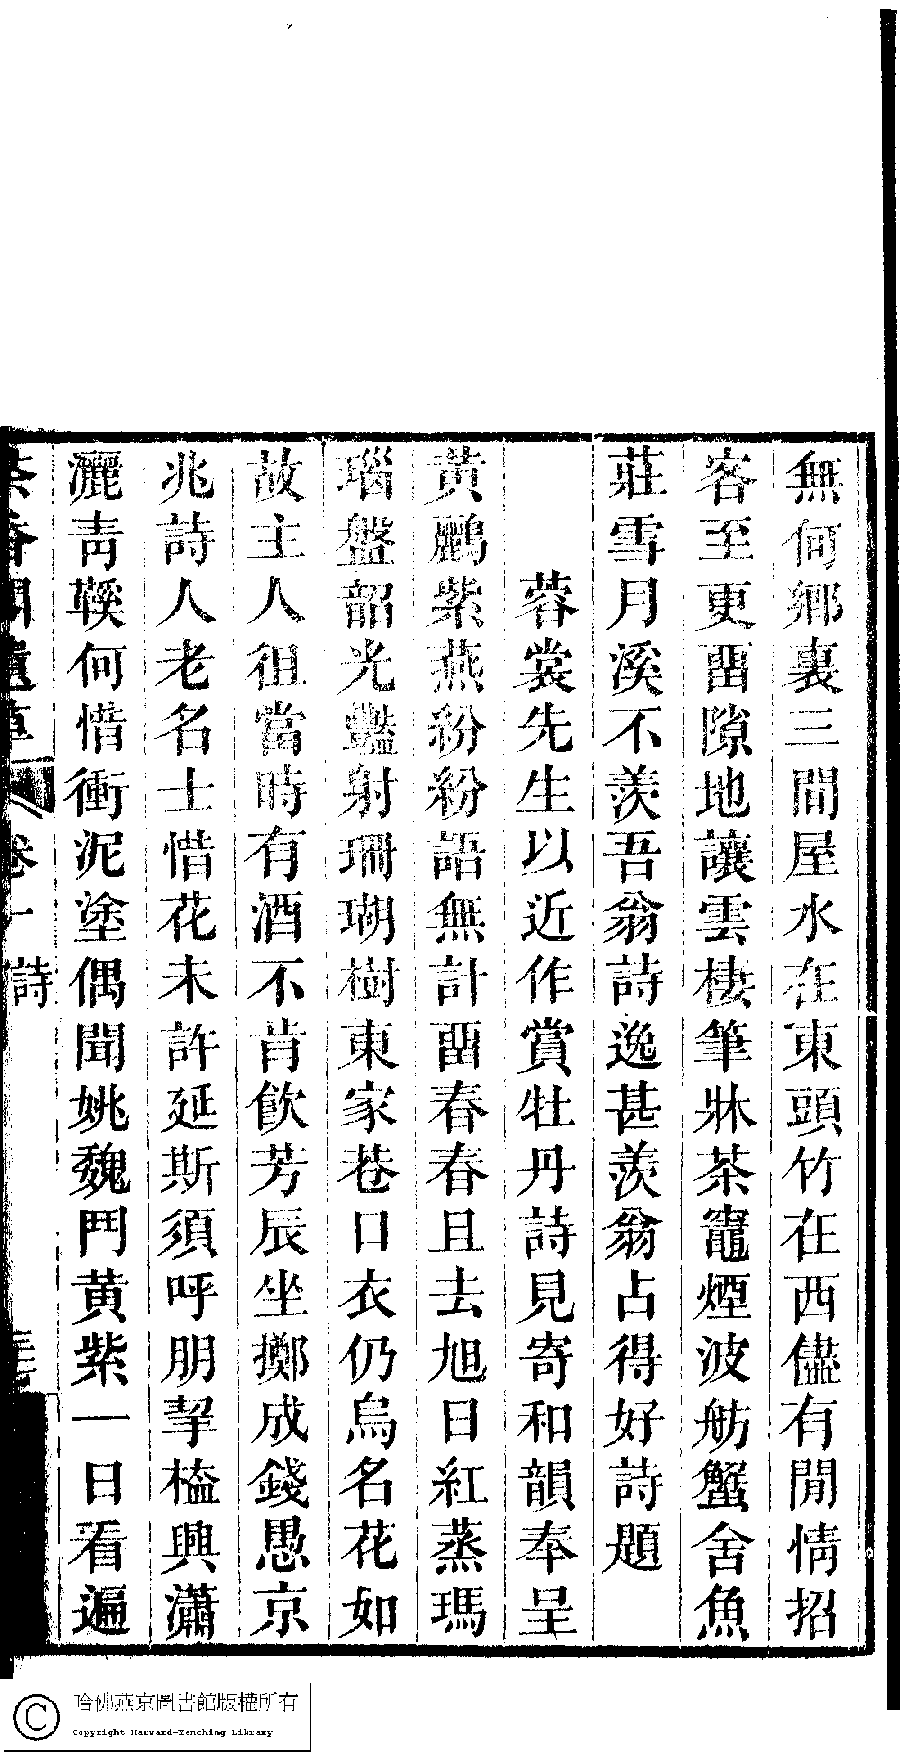 無何鄉裏三間屋水在東頭竹在西儘有閒情招
客至更畱隙地讓雲棲筆牀茶竈煙波舫蟹舍魚
莊雪月溪不羨吾翁詩逸甚羨翁占得好詩題
蓉裳先生以近作賞牡丹詩見寄和韻奉呈
黃鸝紫燕紛紛語無計畱春春且去旭日紅蒸瑪
瑙盤韶光豔射珊瑚樹東家巷口衣仍烏名花如
故主人徂當時有酒不肯飲芳辰坐擲成錢愚京
兆詩人老名士惜花未許延斯須呼朋挈榼興瀟
灑靑鞵何惜衝泥塗偶聞姚魏鬥黃紫一日看遍
茶香閣遺草 卷一 詩
哈佛燕京圖書館版權所有
Copyright Harvard-Yenching Library